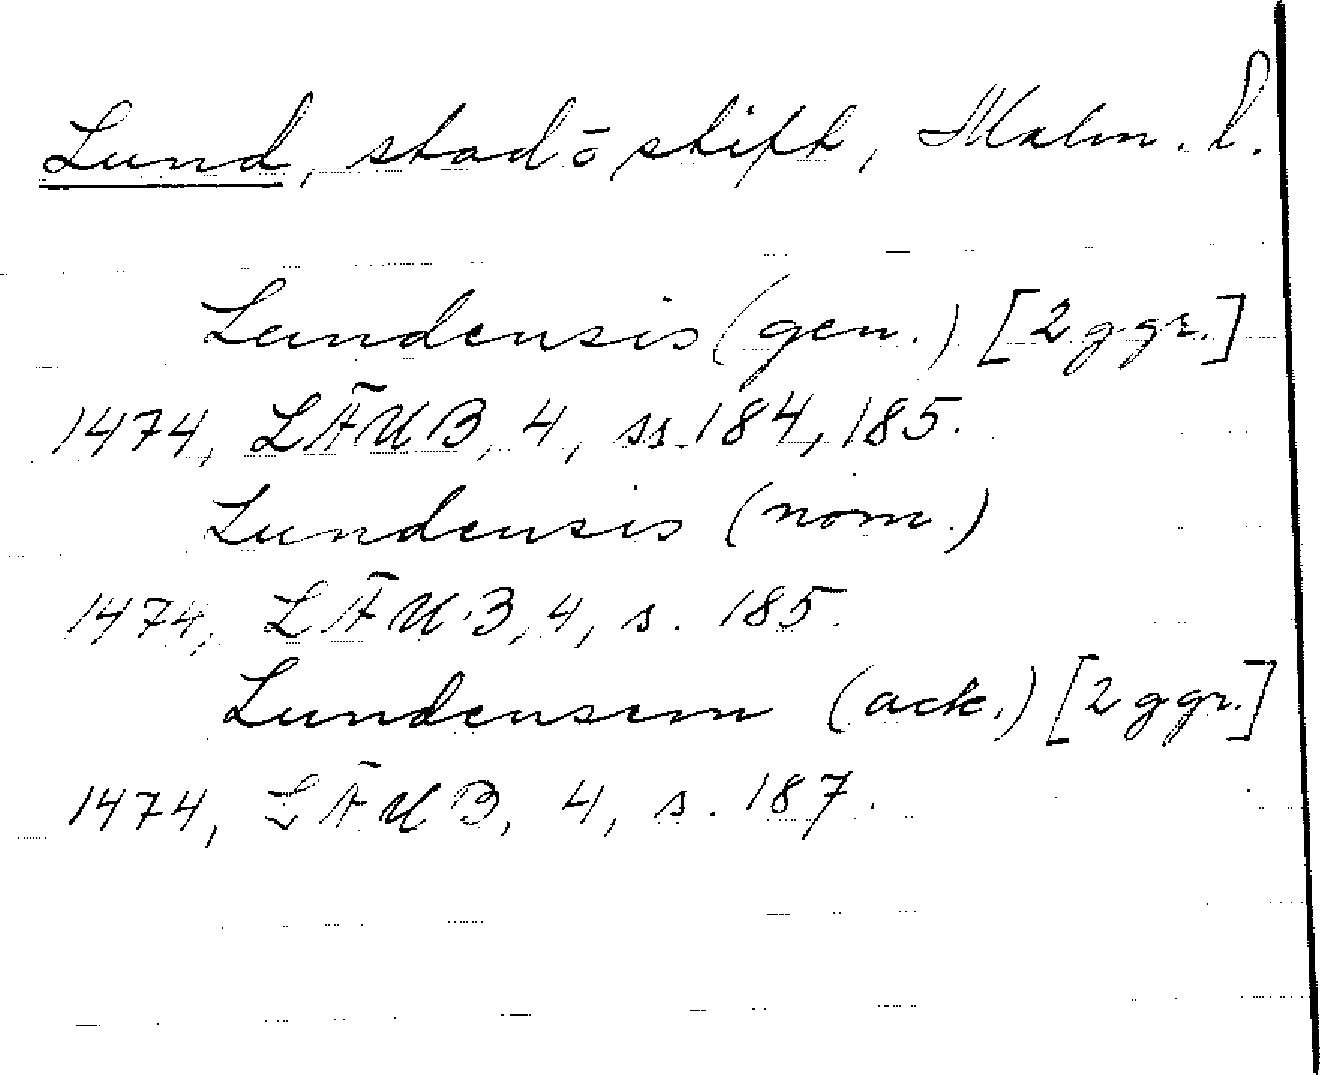 Lund, stad ō stift, Malm. l.
Lundensis (gen.) [2 ggr.]
1474, LÄUB, 4, ss. 184, 185.
Lundensis (nom.)
1474, LÄUB, 4, s. 185.
Lundensem (ack.) [2 ggr.]
1474, LÄUB, 4, s. 187.